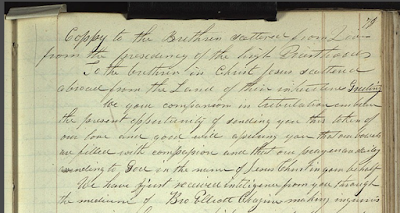 79
Coppy to the Brethren scattered from Zion
from the presidency of the high Priesthood
To the brethren in Christ Jesus scattered
abroad from the Land of their inheritance Greeting
We your companions in tribulation embrace
the present opportunity of sending you this token of
our love and good will assuring you that our bowels
are filled with compassion and that our prayers are daily
ascending to God in the name of Jesus Christ in your behalf
We have just received intelligence from you through
the medium of Bro Elliott of Chagrin making inquiries